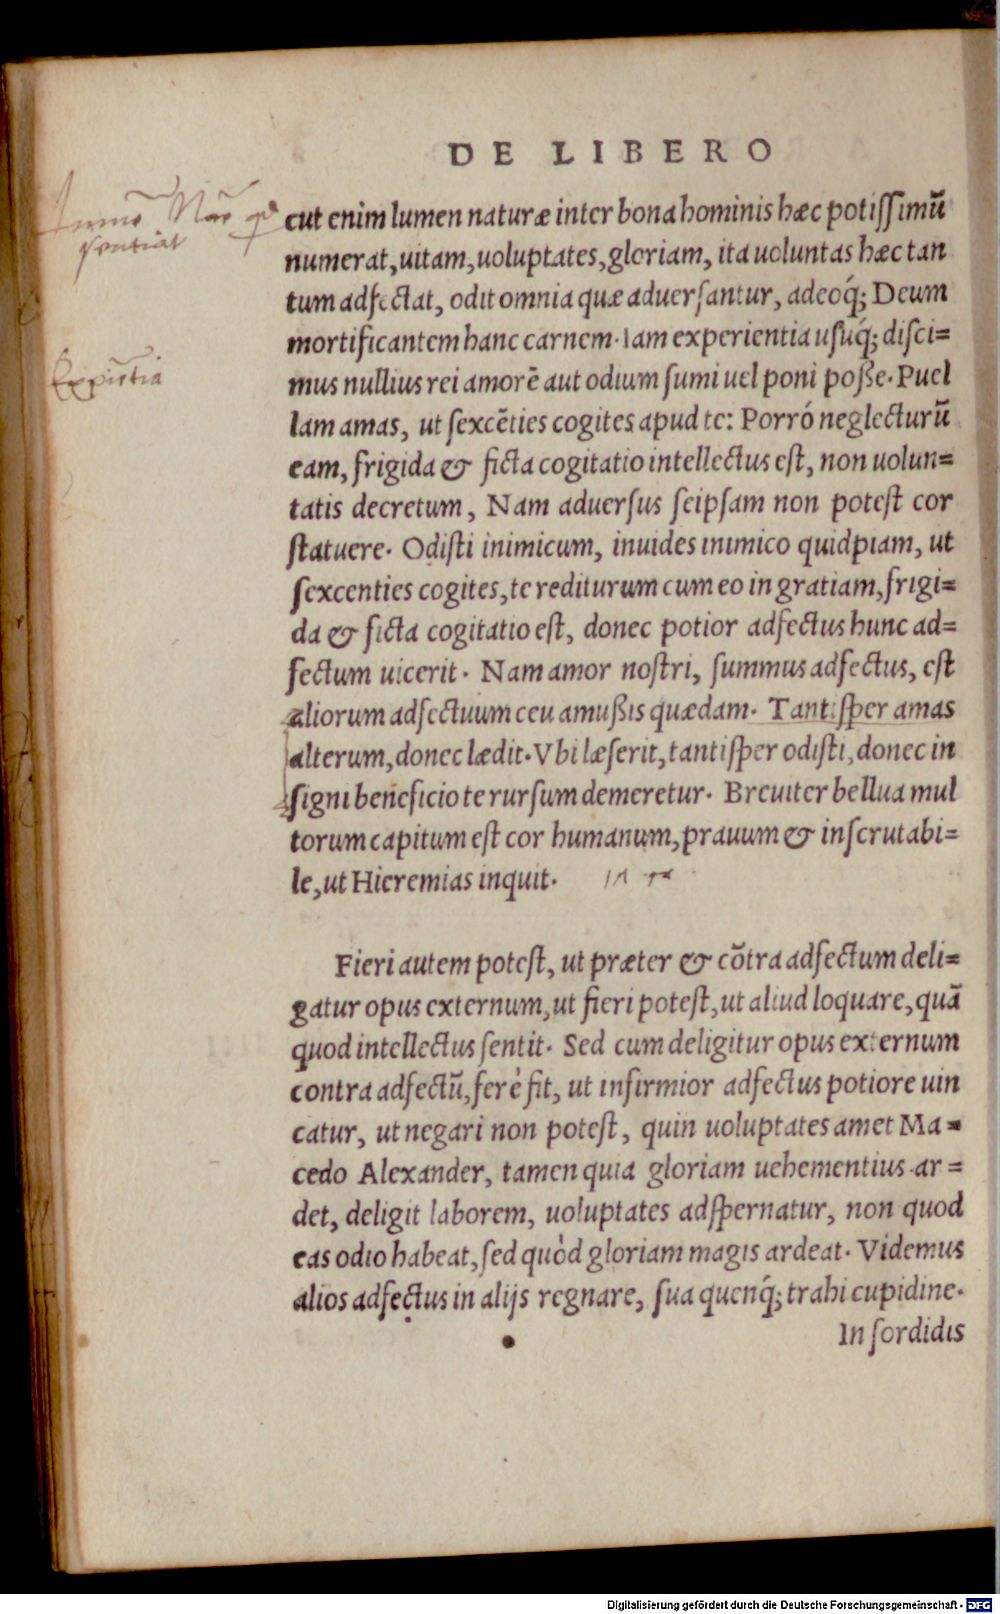 DE LIBERO
cut enim lumen naturæ inter bona hominis hæc potiſſimū
numerat, uitam, uoluptates, gloriam, ita uoluntas hæc tan
tum adfectat, odit omnia quæ aduerſantur, adeoq́; Deum
mortificantem hanc carnem. Iam experientia uſuq́; diſci=
mus nullius rei amorē aut odium ſumi uel poni poße. Puel
lam amas, ut ſexcēties cogites apud te: Porró neglecturū
eam, frigida & ficta cogitatio intellectus eſt, non uolun=
tatis decretum, Nam aduerſus ſeipſam non poteſt cor
ſtatuere. Odiſti inimicum, inuides inimico quidpiam, ut
ſexcenties cogites, te rediturum cum eo in gratiam, frigi=
da & ficta cogitatio eſt, donec potior adfectus hunc ad=
fectum uicerit. Nam amor noſtri, ſummus adfectus, eſt
aliorum adfectuum ceu amußis quædam. Tantiſper amas
alterum, donec lædit. Vbi læſerit, tantiſper odiſti, donec in
ſigni beneficio te rurſum demeretur. Breuiter bellua mul
torum capitum eſt cor humanum, prauum & inſcrutabi=
le, ut Hieremias inquit.
Fieri autem poteſt, ut præter & cōtra adfectum deli=
gatur opus externum, ut fieri poteſt, ut aliud loquare, quā
quod intellectus ſentit. Sed cum deligitur opus externum
contra adfectū, ferè fit, ut infirmior adfectus potiore uin
catur, ut negari non poteſt, quin uoluptates amet Ma=
cedo Alexander, tamen quia gloriam uehementius ar=
det, deligit laborem, uoluptates adſpernatur, non quod
eas odio habeat, ſed quòd gloriam magis ardeat. Videmus
alios adfectus in alijs regnare, ſua quenq́; trahi cupidine.
In ſordidis
Digitalisierung gefördert durch die Deutsche Forschungsgemeinschaft - DFG